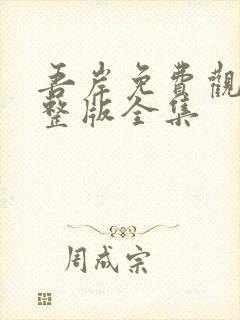 吾岸免費觀
整版全集
周成宗